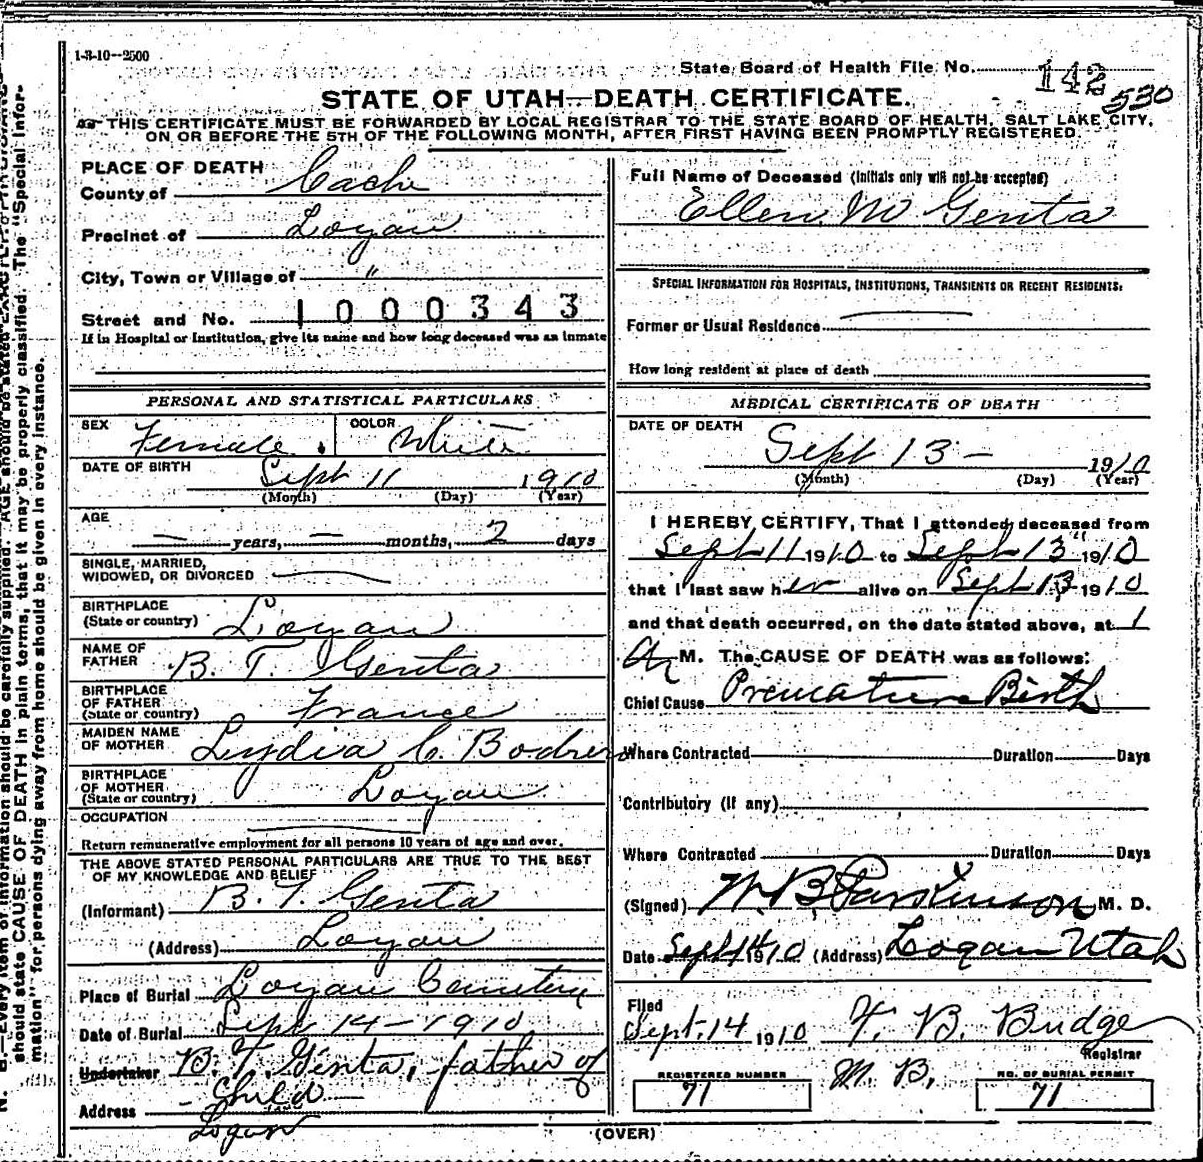 1-3-10--2500
State Board of Health File No. 142
530
STATE OF UTAH—DEATH CERTIFICATE.
THIS CERTIFICATE MUST BE FORWARDED BY LOCAL REGISTRAR TO THE STATE BOARD OF HEALTH, SALT LAKE CITY,
ON OR BEFORE THE 5TH OF THE FOLLOWING MONTH, AFTER FIRST HAVING BEEN PROMPTLY REGISTERED.
PLACE OF DEATH
County of Cache
Precinct of Logan
City, Town or Village of "
Street and No. 1000343
If in Hospital or Institution, give its name and how long deceased was an inmate
PERSONAL AND STATISTICAL PARTICULARS
SEX Female. COLOR White
DATE OF BIRTH Sept 11 1910
(Month) (Day) (Year)
AGE
— years, — months, 2 days
SINGLE, MARRIED,
WIDOWED, OR DIVORCED
BIRTHPLACE
(State or country) Logan
NAME OF
FATHER B. T. Genta
BIRTHPLACE
OF FATHER
(State or country) France
MAIDEN NAME
OF MOTHER Lydia C. Bodrero
BIRTHPLACE
OF MOTHER
(State or country) Logan
OCCUPATION
Return remunerative employment for all persons 10 years of age and over.
THE ABOVE STATED PERSONAL PARTICULARS ARE TRUE TO THE BEST
OF MY KNOWLEDGE AND BELIEF
(Informant) B. T. Genta
(Address) Logan
Place of Burial Logan Cemetery
Date of Burial Sept 14-1910
Undertaker B. T. Genta, father of
- Child -
Address
Logan
Full Name of Deceased (Initials only will not be accepted)
Ellen M Genta
SPECIAL INFORMATION FOR HOSPITALS, INSTITUTIONS, TRANSIENTS OR RECENT RESIDENTS:
Former or Usual Residence
How long resident at place of death
MEDICAL CERTIFICATE OF DEATH
DATE OF DEATH
Sept 13 - 1910
(Month) (Day) (Year)
I HEREBY CERTIFY, That I attended deceased from
Sept 11 1910 to Sept 13" 1910
that I last saw her alive on Sept 13 1910
and that death occurred, on the date stated above, at 1
A M. The CAUSE OF DEATH was as follows:
Chief Cause Premature Birth
Where Contracted Duration Days
Contributory (If any)
Where Contracted Duration Days
(Signed) W. B. Parkinson M. D.
Date Sept 14 1910 (Address) Logan Utah
Filed
Sept. 14 1910 T. B. Budge
Registrar
M. B.
REGISTERED NUMBER
71
NO. OF BURIAL PERMIT
71
(OVER)
N. B.—Every item of information should be carefully supplied. AGE should be stated
should state CAUSE OF DEATH in plain terms, that it may be properly classified. The "Special Infor-
mation" for persons dying away from home should be given in every instance.